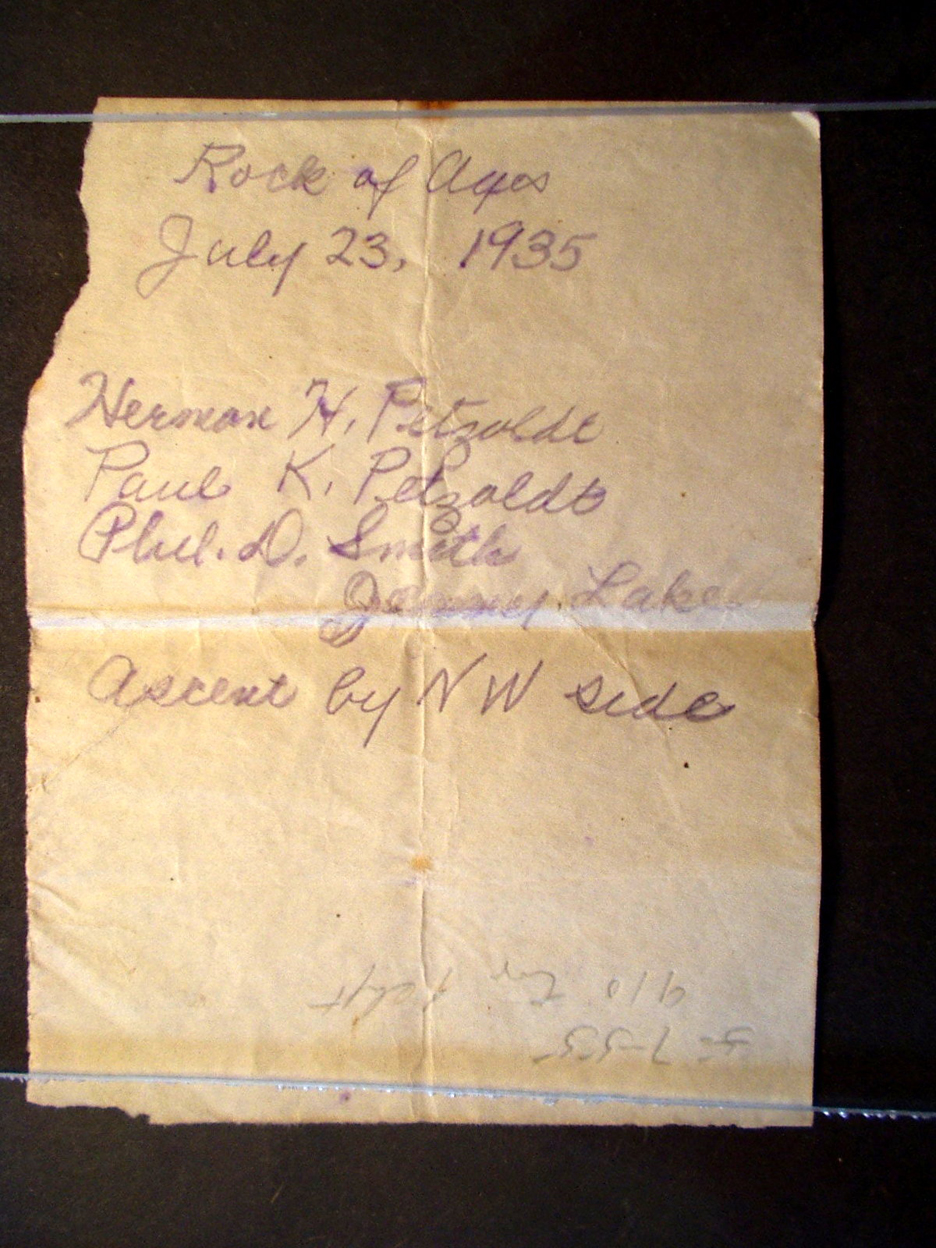 Rock of Ages
July 23, 1935
Herman H. Petzoldt
Paul K. Petzoldt
Phil. D. Smith
Jenny Lake
Ascent by NW side